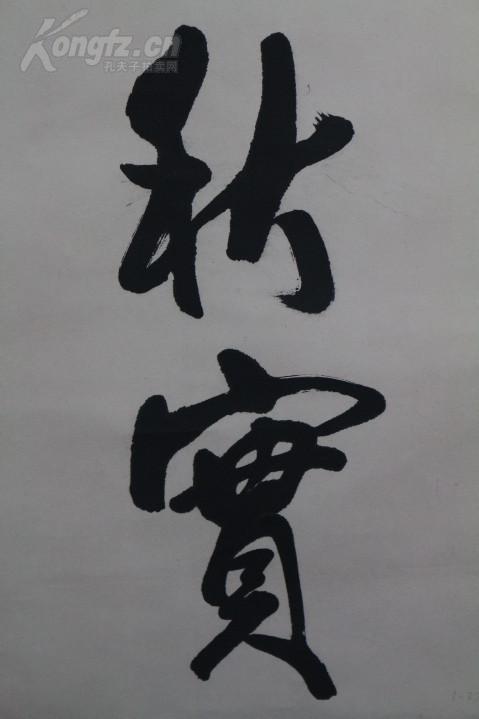 Kongfz.cn
孔夫子拍卖网
秋
實